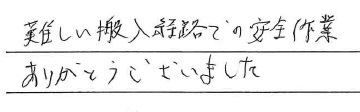 難しい搬入経路での安全作業
ありがとうございました